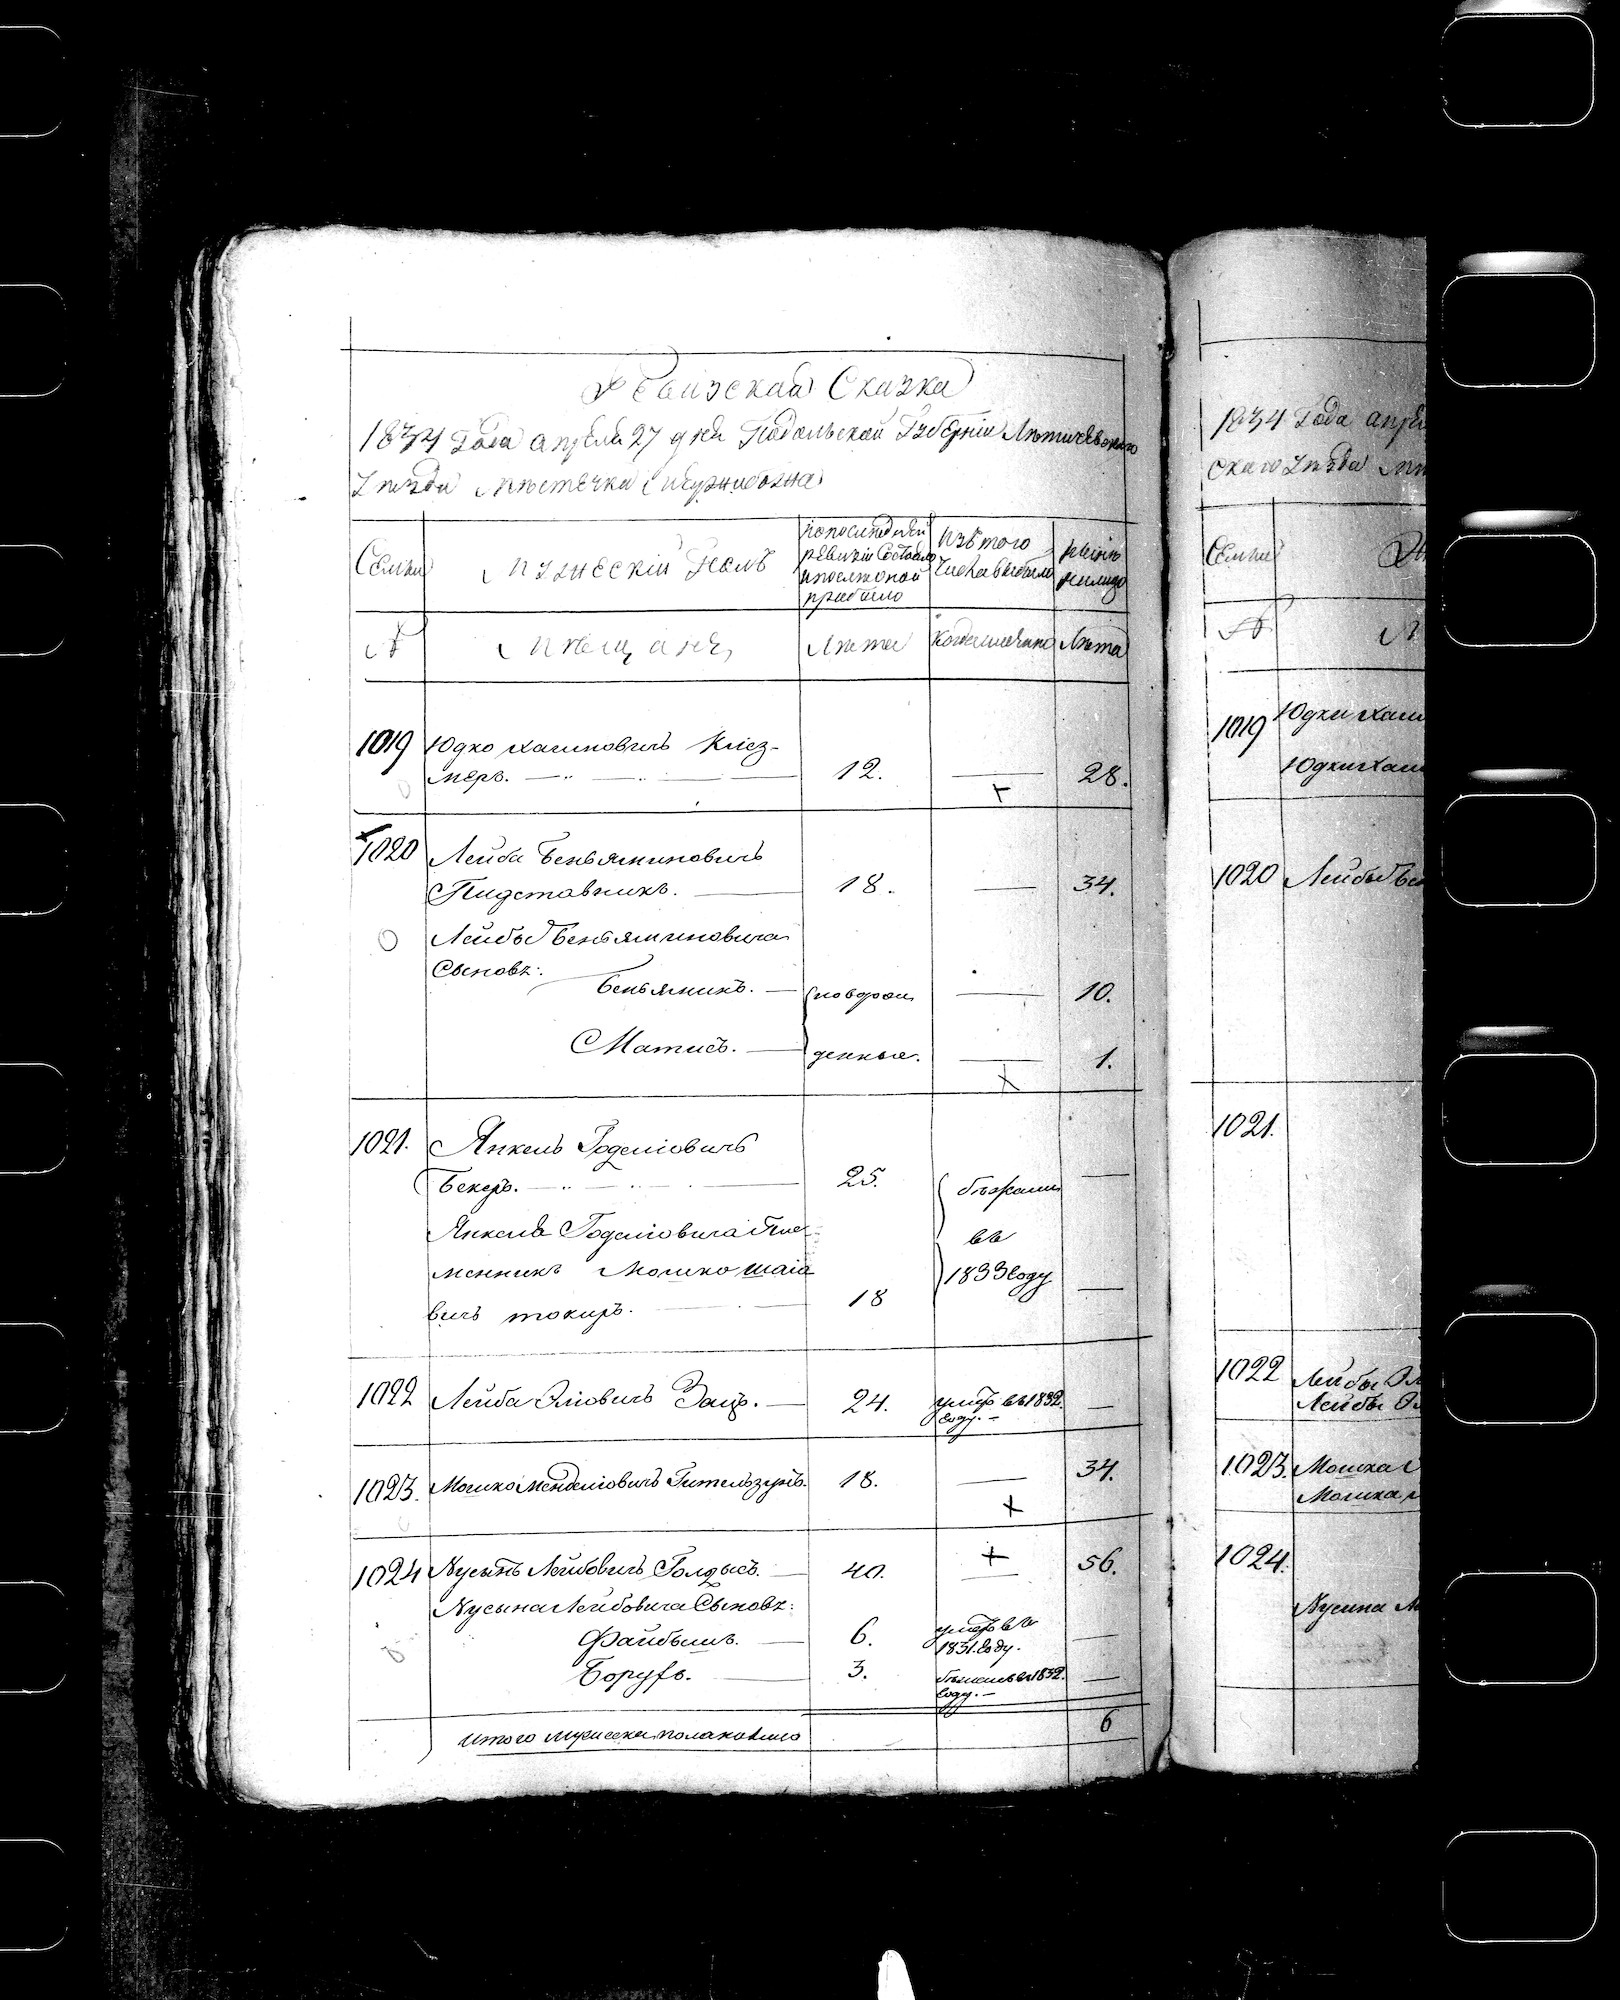 Ревизская Сказка
1834 Года апреля 27 дня Подольской Губерніи Летичевского
Уезда местечка Межибожа
Семьи
Мужескій Полъ
по последней ревизіи состояло и после оной прибыло
Изъ того числа выбыло
ныне на лицо
№
Мещане
Лета
Когда именно
Лета
1019 Юдко Хаимовичъ Клез-
меръ. 12. 28.
1020 Лейба Беньяминовичъ
Пидставникъ. 18. 34.
Лейбы Беньяминовича
Сыновъ:
Беньяминъ. новорож 10.
Матисъ. денные. 1.
1021. Янкель Годеліовичъ
Бекеръ. 25. бежали
Янкеля Годеліовича Пле-
въ
менникъ Мошко Шаіо
1833 году
вичъ токиръ. 18
1022 Лейба Эліовичъ Зацъ. 24. умеръ въ 1832
году.
1023. Мошко Менделіовичъ Гительзунъ. 18. 34.
1024 Нусынъ Лейбовичъ Голдысъ. 40. 56.
Нусына Лейбовича Сыновъ:
Файбышъ. 6. умеръ въ
1831. году.
Борухъ. 3. бежалъ въ 1832.
году.
Итого мужеска пола на лицо 6
1834 Года апре
скаго Уезда
Семьи
№
1019 Юдки Хаим
Юдки Хаим
1020 Лейбы Бен
1021.
1022 Лейбы Эл
Лейбы Э
1023. Мошка
Мошка
1024. Нусина